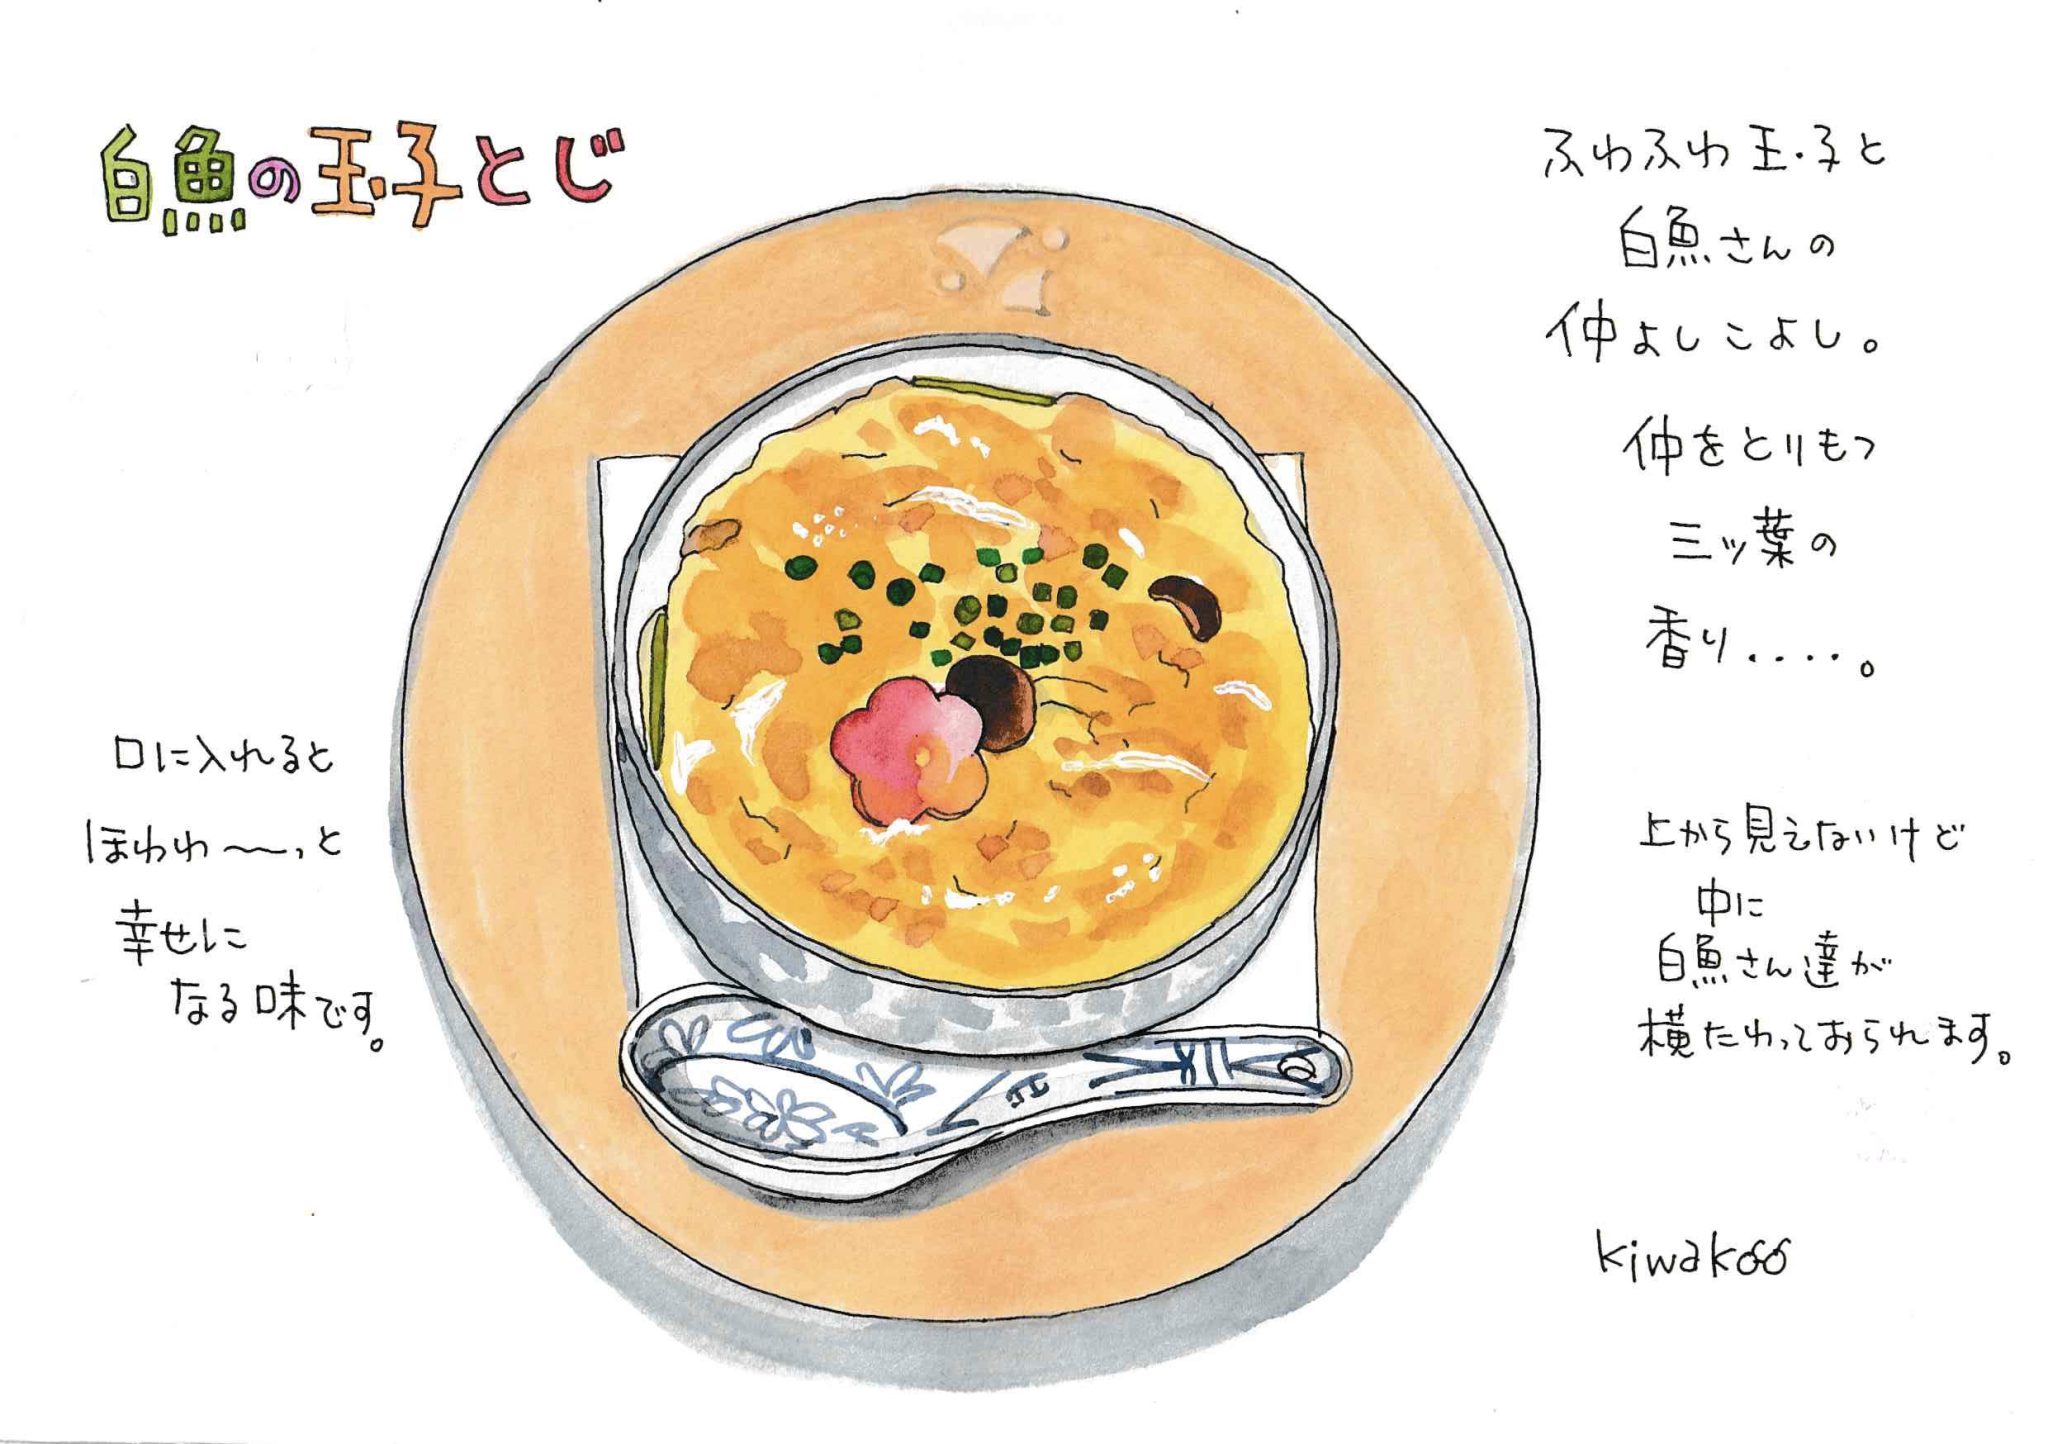 白魚の玉子とじ
ふわふわ玉子と
白魚さんの
仲よしこよし。
仲をとりもつ
三ッ葉の
香り....。
口に入れると
ほわわ〜〜っと
幸せに
なる味です。
上から見えないけど
中に
白魚さん達が
横たわっておられます。
kiwakoo